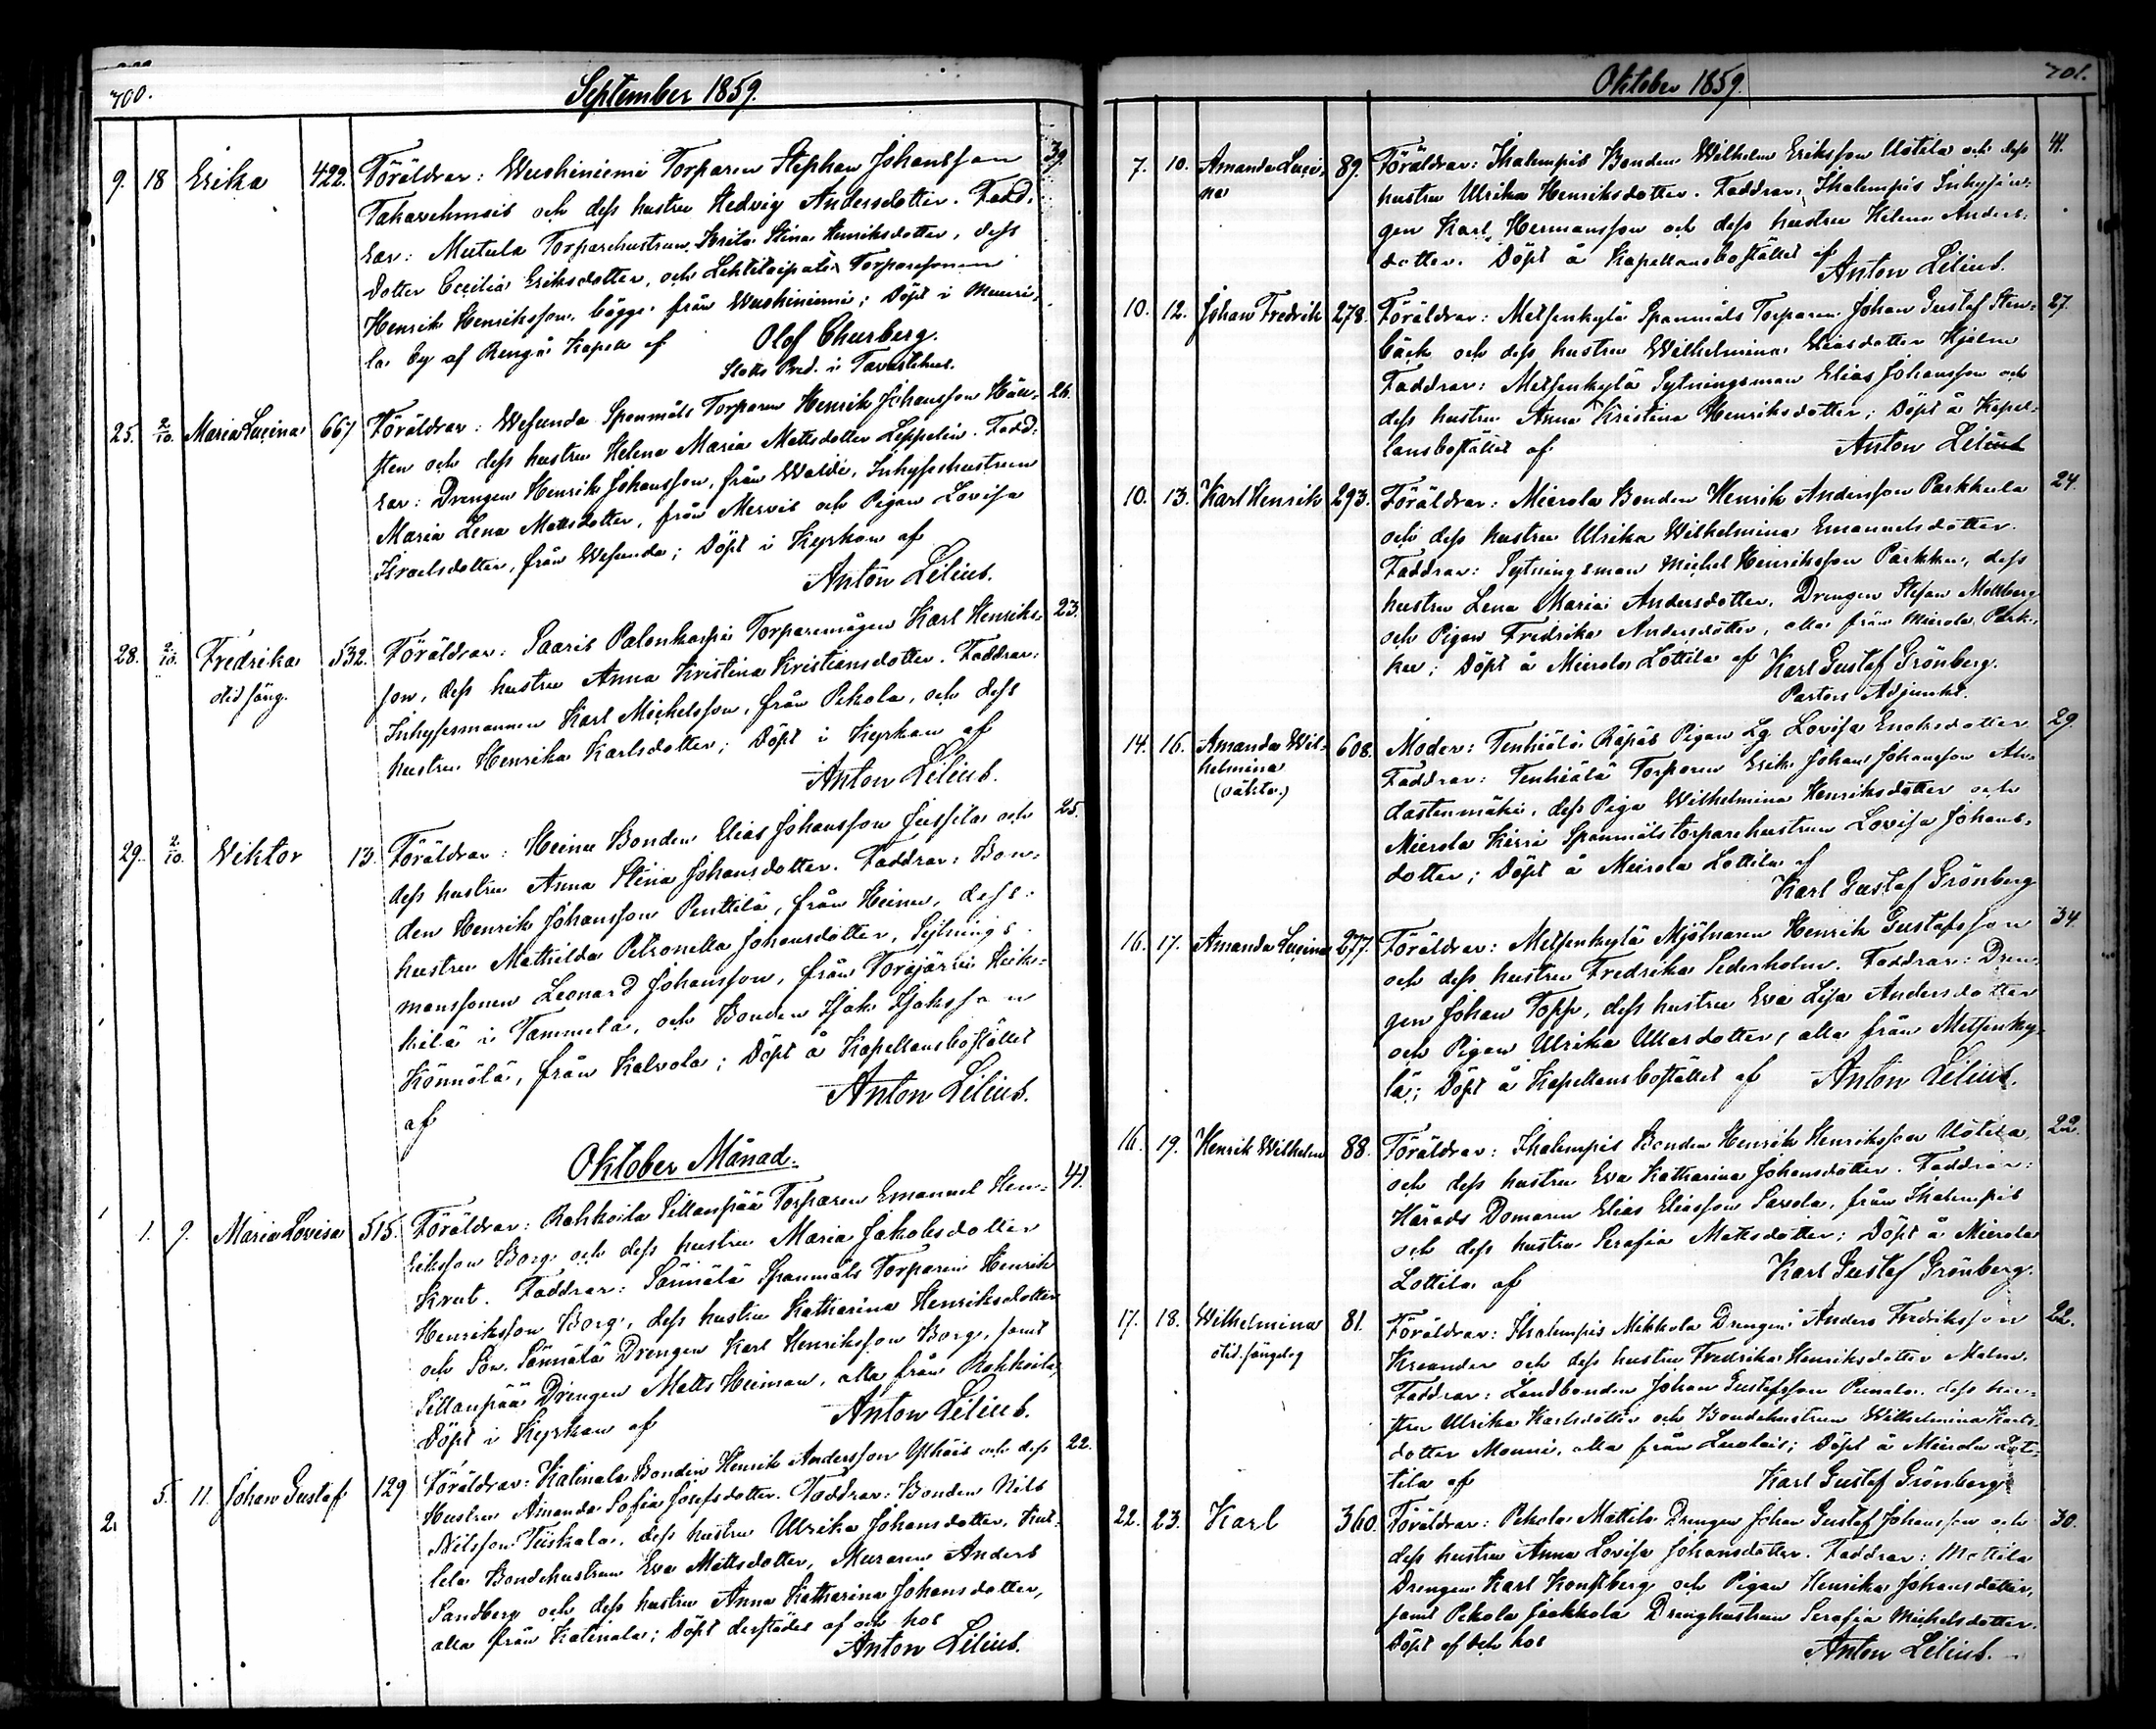 700.
September 1859.
9. 18 Erika 422. Föräldrar: Wuohiniemi Torparen Stephan Johansson 39.
och dess hustru Hedvig Andersdotter. Fadd-
rar: Mutula Torparehustrun Brita Stina Henriksdotter, dess
dotter Cecilia Eriksdotter, och Torparesonen
Henrik Henriksson, bägge från Wuohiniemi; Döpt i
la by af Rengo Kapell af Olof Churberg.
Slotts Pred. i Tavastehus.
25. 2/10. Maria Lucina 667 Föräldrar: Wesunda Spanmåls Torparen Henrik Johansson Häll- 26.
sten och dess hustru Helena Maria Mattsdotter Leppelin. Fadd-
rar: Drengen Henrik Johansson, från Walde, Inhyseshustrun
Maria Lena Mattsdotter, från Mervis och Pigan Lovisa
Israelsdotter, från Wesunda; Döpt i Kyrkan af
Anton Lilius.
28. 2/10. Fredrika 532. Föräldrar: Saaris Palonkorpi Torparemågen Karl Henriks- 23.
otid fäng.
son, dess hustru Anna Kristina Kristiansdotter. Faddrar:
Inhysesmannen Karl Michelsson, från Pekola, och dess
hustru Henrika Karlsdotter; Döpt i Kyrkan af
Anton Lilius.
29. 2/10. Viktor 13. Föräldrar: Heinu Bonden Elias Johansson Jussila och 25.
dess hustru Anna Stina Johansdotter. Faddrar: Bon-
den Henrik Johansson Penttilä, från Heinu, dess
hustru Mathilda Petronella Johansdotter, Sytnings-
mansonen Leonard Johansson, från Torajärvi Heik-
kilä i Tammela, och Bonden Isak Isaksson
Könnölä, från Kalvola; Döpt å Kapellansbostället
af Anton Lilius.
Oktober Månad.
1. 9. Maria Lovisa 515. Föräldrar: Rahkoila Sillanpää Torparen Emanuel Hen- 41.
riksson Borg och dess hustru Maria Jakobsdotter
Krut. Faddrar: Sännälä Spanmåls Torparen Henrik
Henriksson Borg, dess hustru Katharina Henriksdotter
och Son, Sännälä Drengen Karl Henriksson Borg, samt
Sillanpää Drengen Matts Heiman, alla från Rahkoila;
Döpt i Kyrkan af Anton Lilius.
2. 5. 11. Johan Gustaf 129 Föräldrar: Katinala Bonden Henrik Andersson och dess 22.
Hustru Amanda Sofia Josefsdotter. Faddrar: Bonden Nils
Nilsson Tuiskala, dess hustru Ulrika Johansdotter,
lela Bondehustrun Eva Mattsdotter, Muraren Anders
Sandberg och dess hustru Anna Katharina Johansdotter,
alla från Katinala; Döpt derstädes af och hos
Anton Lilius.
Oktober 1859.
701.
7. 10. Amanda Luci- 89. Föräldrar: Ihalempis Bonden Wilhelm Eriksson Uotila och dess 41.
na
hustru Ulrika Henriksdotter. Faddrar: Ihalempis Inhysin-
gen Karl Hermansson och dess hustru Helena Anders-
dotter. Döpt å Kapellansbostället af
Anton Lilius.
10. 12. Johan Fredrik 278. Föräldrar: Metsenkylä Spanmåls Torparen Johan Gustaf Sten- 27.
bäck och dess hustru Wilhelmina Eliasdotter Hjelm
Faddrar: Metsenkylä Sytningsman Elias Johansson och
dess hustru Anna Kristina Henriksdotter; Döpt å Kapel-
lansbostället af Anton Lilius
10. 13. Karl Henrik 293. Föräldrar: Mierola Bonden Henrik Andersson Parkkula 24.
och dess hustru Ulrika Wilhelmina Emanuelsdotter.
Faddrar: Sytningsman Michel Henriksson Parkku, dess
hustru Lena Maria Andersdotter, Drengen Stefan Mollberg
och Pigan Fredrika Andersdotter, alla från Mierola Park-
ku; Döpt å Mierola Lottila af Karl Gustaf Grönberg.
Pastors Adjunkt.
14. 16. Amanda Wil- 608. Moder: Tenhiälä Räpäs Pigan Lg. Lovisa Enoksdotter 29.
helmina
(oäkta.)
Faddrar: Tenhiälä Torparen Erik Johan Johansson Ah-
dastenmäki, dess Piga Wilhelmina Henriksdotter och
Mierola Kirri Spanmålstorparehustrun Lovisa Johans-
dotter; Döpt å Mierola Lottila af
Karl Gustaf Grönberg
16. 17. Amanda Lucina 277. Föräldrar: Metsenkylä Mjölnaren Henrik Gustafsson 34.
och dess hustru Fredrika Sederholm. Faddrar: Dren-
gen Johan Topp, dess hustru Eva Lisa Andersdotter
och Pigan Ulrika Ullasdotter, alla från Metsenky-
lä; Döpt å Kapellansbostället af Anton Lilius.
16. 19. Henrik Wilhelm 88. Föräldrar: Ihalempis Bonden Henrik Henriksson Uotila 22.
och dess hustru Eva Katharina Johansdotter. Faddrar:
Härads Domaren Elias Eliasson Savola, från Ihalempis
och dess hustru Serafia Mattsdotter; Döpt å Mierola
Lottila af Karl Gustaf Grönberg.
17. 18. Wilhelmina 81. Föräldrar: Ihalempis Mikkola Drengen Anders Fredriksson 22.
otid. fängslog
Kreander och dess hustru Fredrika Henriksdotter Malm.
Faddrar: Landbonden Johan Gustafsson dess hu-
stru Ulrika Karlsdotter och Bondehustrun Wilhelmina Karls-
dotter Mouni, alla från Luolais; Döpt å Mierola Lot-
tila af Karl Gustaf Grönberg
22. 23. Karl 360. Föräldrar: Pekola Mattila Drengen Johan Gustaf Johansson och 30.
dess hustru Anna Lovisa Johansdotter. Faddrar: Mattila
Drengen Karl Kronberg och Pigan Henrika Johansdotter,
samt Pekola Jaakkola Drenghustrun Serafia Michelsdotter.
Döpt af och hos Anton Lilius.